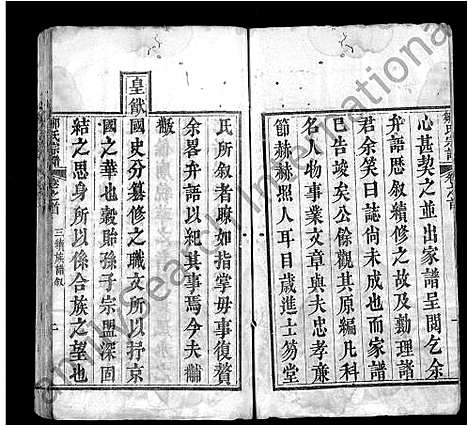 心甚契之並出家譜呈閱乞余
弁語歷叙續修之故及勷理諸
君余笑曰誌尚未成也而家譜
已告竣矣公餘觀其原編凡科
名人物事業文章與夫忠孝亷
節赫赫照人耳目歲進士笏堂
氏所叙者瞭如指掌毋事復贅
余畧弁語以紀其事焉今夫黼
黻
皇猷國史分纂修之職文所以抒京
國之華也榖貽孫子宗盟深固
結之思身所以係合族之望也
三續族譜叙
FamilySearch International